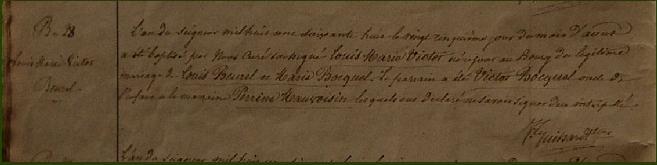 Bu 28
Louis Marie Victor
Beurel
L'an du Seigneur mil huit cent soixante huit le vingt cinquième jour du mois d'avril
a été baptisé par Nous Curé soussigné Louis Marie Victor né ce jour au Bourg du légitime
mariage de Louis Beurel et Marie Bocquel. Le parrain a été Victor Bocquel oncle de
l'enfant et la marraine Perrine Mauvoisin lesquels ont déclaré ne savoir signer de ce interpellé.
L'an du seigneur mil huit cent soixante huit le